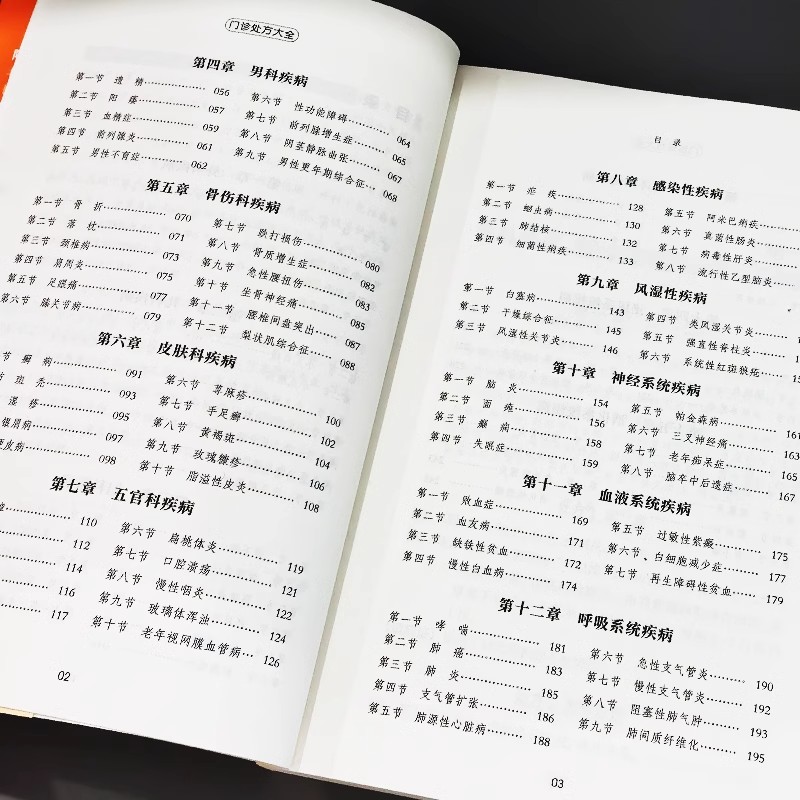 门诊处方大全
第四章 男科疾病
第一节 遗精 056
第二节 阳痿 057
第三节 血精症 059
第四节 前列腺炎 061
第五节 男性不育症 062
第六节 性功能障碍 064
第七节 前列腺增生症 065
第八节 阴茎静脉曲张 067
第九节 男性更年期综合征 068
第五章 骨伤科疾病
第一节 骨折 070
第二节 落枕 071
第三节 颈椎病 073
第四节 肩周炎 075
第五节 足跟痛 077
第六节 膝关节病 079
第七节 跌打损伤 080
第八节 骨质增生症 082
第九节 急性腰扭伤 083
第十节 坐骨神经痛 085
第十一节 腰椎间盘突出 087
第十二节 梨状肌综合征 088
第六章 皮肤科疾病
节 癣病 091
节 斑秃 093
湿疹 095
银屑病 097
皮病 098
第六节 荨麻疹 100
第七节 手足癣 102
第八节 黄褐斑 104
第九节 玫瑰糠疹 106
第十节 脂溢性皮炎 108
第七章 五官科疾病
110
112
114
116
117
第六节 扁桃体炎 119
第七节 口腔溃疡 121
第八节 慢性咽炎 122
第九节 玻璃体浑浊 124
第十节 老年视网膜血管病 126
02
目录
第八章 感染性疾病
第一节 疟疾 128
第二节 蛔虫病 130
第三节 肺结核 132
第四节 细菌性痢疾 133
第五节 阿米巴痢疾
第六节 真菌性肠炎
第七节 病毒性肝炎
第八节 流行性乙型脑炎
第九章 风湿性疾病
第一节 白塞病 143
第二节 干燥综合征 145
第三节 风湿性关节炎 146
第四节 类风湿关节炎
第五节 强直性脊柱炎
第六节 系统性红斑狼疮
第十章 神经系统疾病
第一节 脑炎 154
第二节 面瘫 156
第三节 癫痫 158
第四节 失眠症 159
第五节 帕金森病 161
第六节 三叉神经痛 163
第七节 老年痴呆症 165
第八节 脑卒中后遗症 167
第十一章 血液系统疾病
第一节 败血症 169
第二节 血友病 171
第三节 缺铁性贫血 172
第四节 慢性白血病 174
第五节 过敏性紫癜 175
第六节 白细胞减少症 177
第七节 再生障碍性贫血 179
第十二章 呼吸系统疾病
第一节 哮喘 181
第二节 肺痛 183
第三节 肺炎 185
第四节 支气管扩张 186
第五节 肺源性心脏病 188
第六节 急性支气管炎 190
第七节 慢性支气管炎 192
第八节 阻塞性肺气肿 193
第九节 肺间质纤维化 195
03